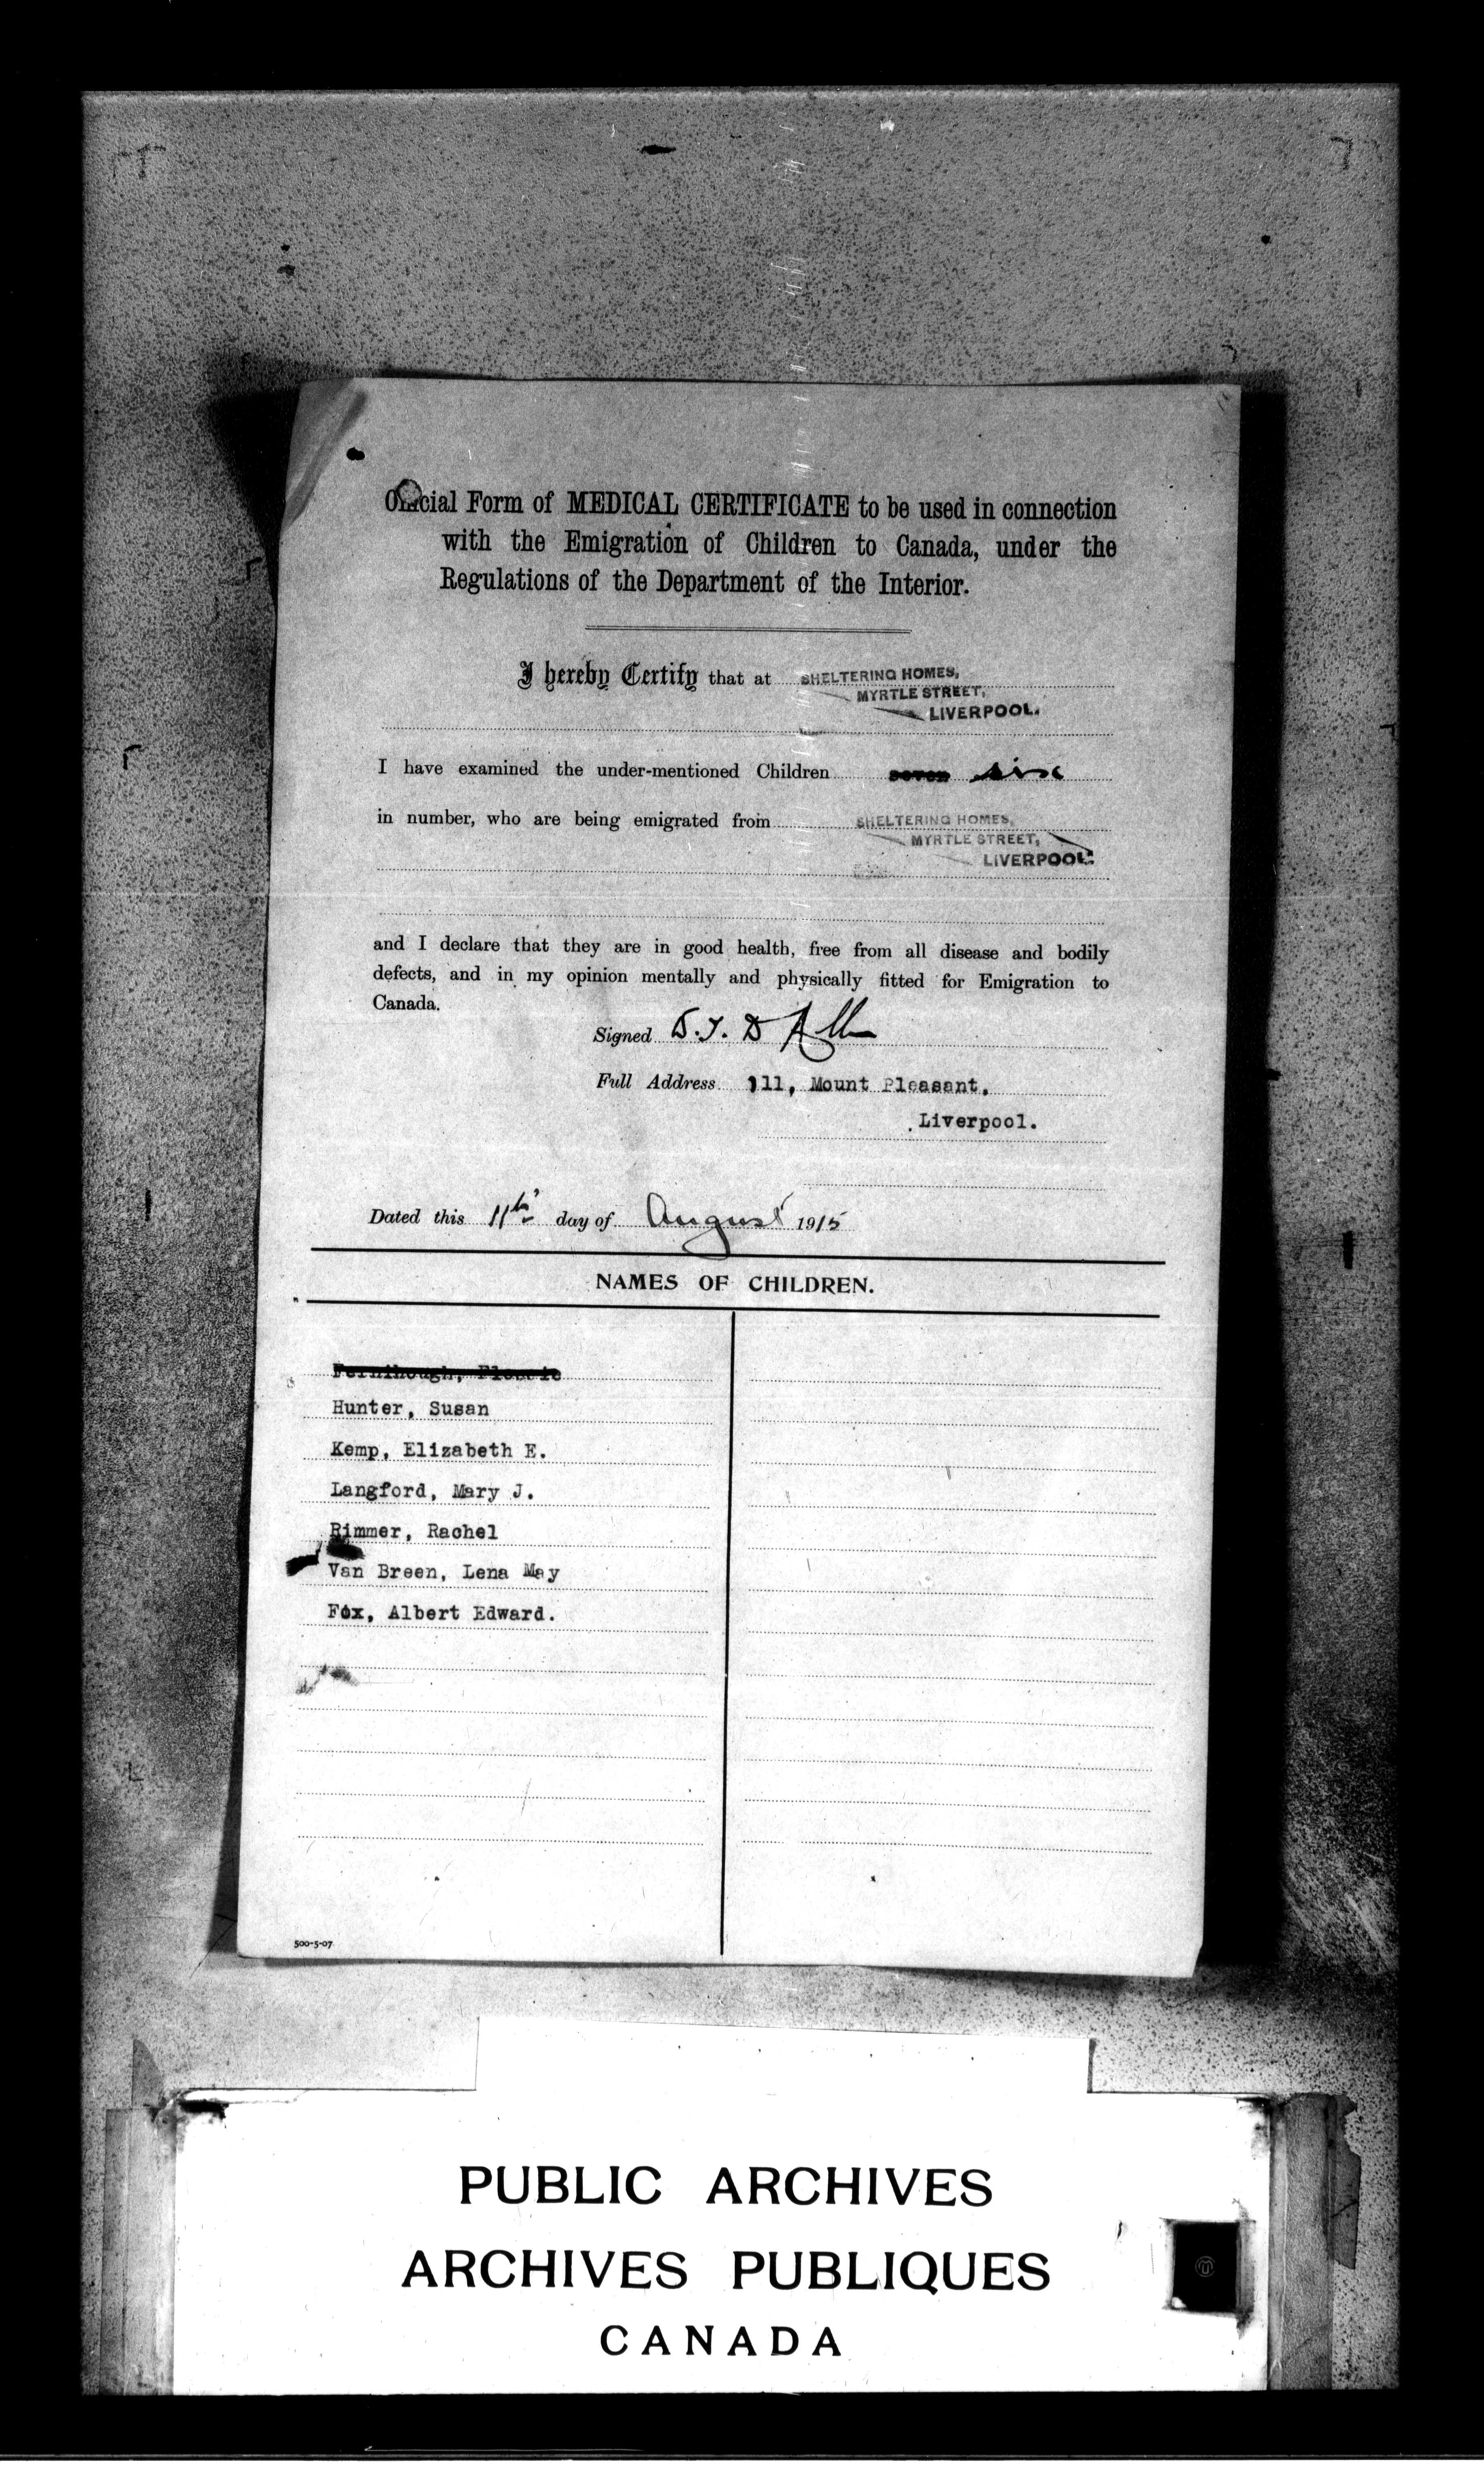 Official Form of MEDICAL CERTIFICATE to be used in connection
with the Emigration of Children to Canada, under the
Regulations of the Department of the Interior.
I hereby Certify that at SHELTERING HOMES,
MYRTLE STREET,
LIVERPOOL.
I have examined the under-mentioned Children seven six
in number, who are being emigrated from SHELTERING HOMES,
MYRTLE STREET,
LIVERPOOL.
and I declare that they are in good health, free from all disease and bodily
defects, and in my opinion mentally and physically fitted for Emigration to
Canada.
Signed
Full Address 111, Mount Pleasant,
Liverpool.
Dated this 11th day of August 1915
NAMES OF CHILDREN.
Fernihough, Flossie
Hunter, Susan
Kemp, Elizabeth E.
Langford, Mary J.
Rimmer, Rachel
Van Breen, Lena May
Fox, Albert Edward.
500-5-07
PUBLIC ARCHIVES
ARCHIVES PUBLIQUES
CANADA